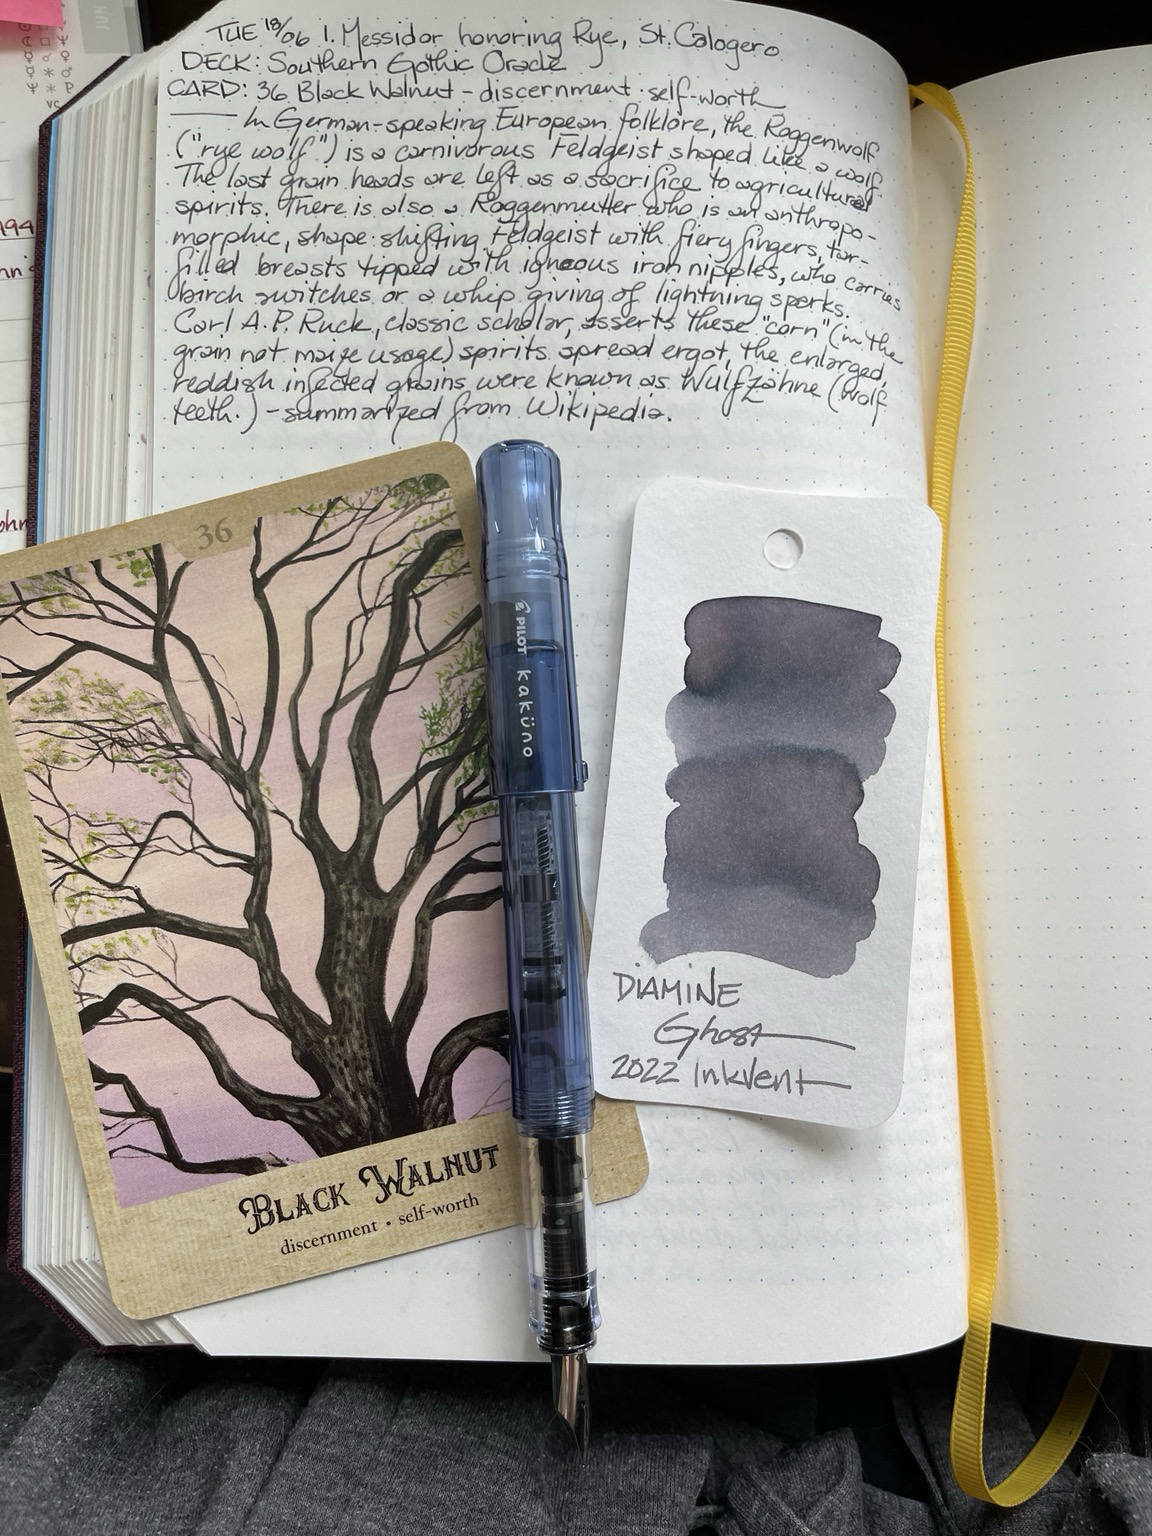 TUE 18/06 1. Messidor honoring Rye, St. Calogero
DECK: Southern Gothic Oracle
CARD: 36 Black Walnut - discernment · self-worth
In German-speaking European folklore, the Roggenwolf
("rye wolf") is a carnivorous Feldgeist shaped like a wolf.
The last grain heads are left as a sacrifice to agricultural
spirits. There is also a Roggenmutter who is an anthropo-
morphic, shape-shifting Feldgeist with fiery fingers, tar-
filled breasts tipped with igneous iron nipples, who carries
birch switches or a whip giving of lightning sparks.
Carl A.P. Ruck, classic scholar, asserts these "corn" (in the
grain not maize usage) spirits spread ergot, the enlarged,
reddish infected grains were known as Wulfzähne (wolf
teeth.) - summarized from Wikipedia.
36
BLACK WALNUT
discernment • self-worth
PILOT kaküno
DIAMINE
Ghost
2022 Inkvent
JUN
VC
P
1994